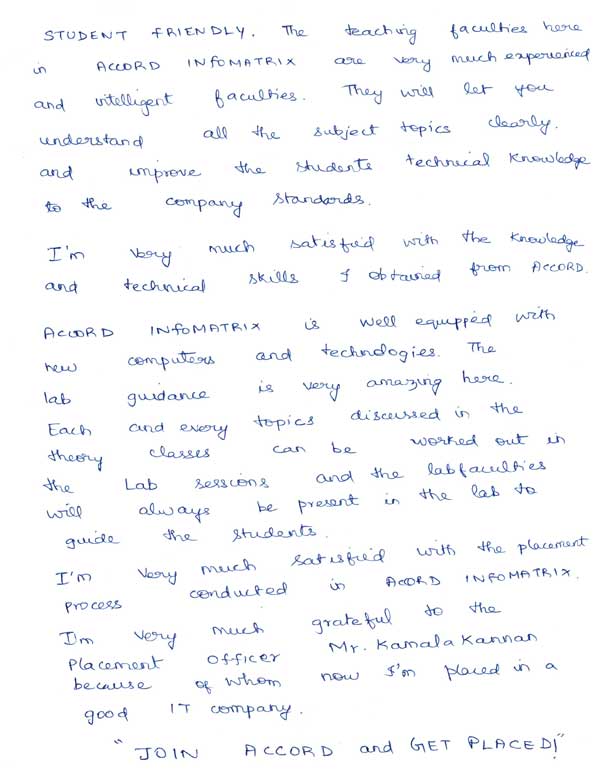 STUDENT FRIENDLY. The teaching faculties here
in ACCORD INFOMATRIX are very much experienced
and intelligent faculties. They will let you
understand all the subject topics clearly.
and improve the students technical knowledge
to the company standards.
I'm very much satisfied with the knowledge
and technical skills I obtained from ACCORD.
ACCORD INFOMATRIX is well equipped with
new computers and technologies. The
lab guidance is very amazing here.
Each and every topics discussed in the
theory classes can be worked out in
the Lab sessions and the lab faculties
will always be present in the lab to
guide the students.
I'm very much satisfied with the placement
process conducted in ACCORD INFOMATRIX.
I'm very much grateful to the
Placement Officer Mr. Kamala Kannan
because of whom now I'm placed in a
good IT company.
"JOIN ACCORD and GET PLACED!"